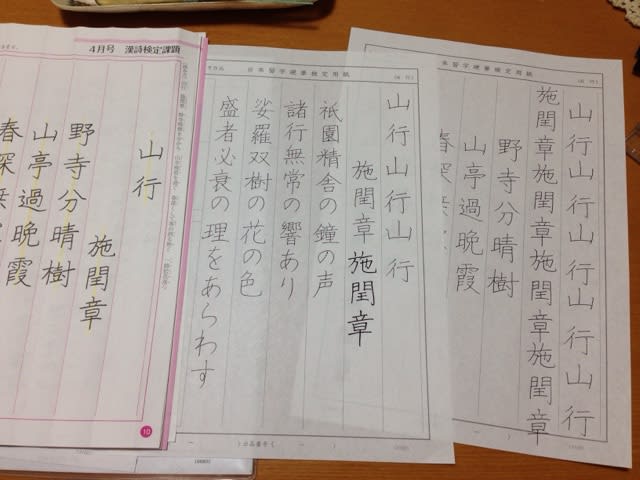 4月号 漢詩検定課題
山行
施閏章
野寺分晴樹
山亭過晩霞
春深無
10
日本習字硬筆検定用紙
山行山行
施閏章施閏章
祇園精舎の鐘の声
諸行無常の響あり
娑羅双樹の花の色
盛者必衰の理をあらわす
本習字硬筆検定用紙
山行山行山行山行山行
施閏章施閏章施閏章施閏章
野寺分晴樹
山亭過晩霞
春深無